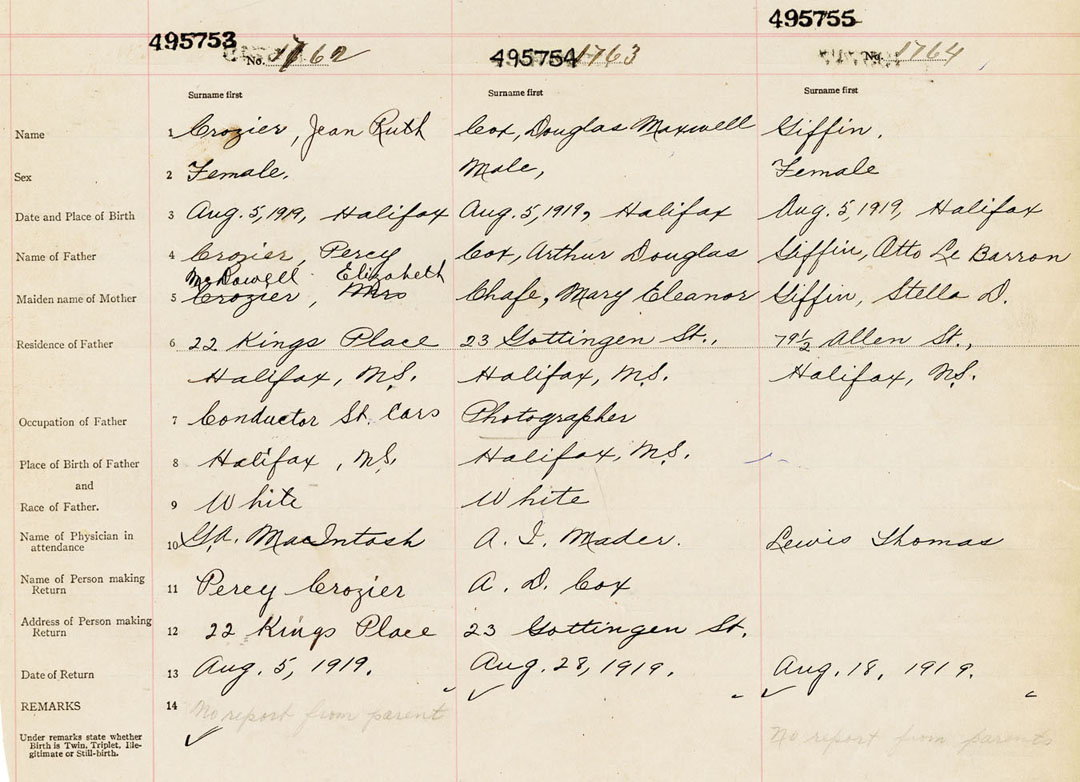 495755
495753
No. 1762
495754 1763
No. 1764
Surname first Surname first Surname first
Name 1 Crozier, Jean Ruth Cox, Douglas Maxwell Giffin.
Sex 2 Female. Male, Female
Date and Place of Birth 3 Aug. 5, 1919, Halifax Aug. 5, 1919, Halifax Aug. 5, 1919, Halifax
Name of Father 4 Crozier, Percy Cox, Arthur Douglas Giffin, Otto Le Barron
McDowell Elizabeth
Maiden name of Mother 5 Crozier, Mrs Chafe, Mary Eleanor Giffin, Stella D.
Residence of Father 6 22 Kings Place 23 Gottingen St., 79½ Allen St.,
Halifax, N.S. Halifax, N.S. Halifax, N.S.
Occupation of Father 7 Conductor St. Cars Photographer
Place of Birth of Father 8 Halifax, N.S. Halifax, N.S.
and
Race of Father. 9 White White
Name of Physician in
attendance 10 MacIntosh A. I. Mader. Lewis Thomas
Name of Person making
Return 11 Percy Crozier A. D. Cox
Address of Person making
Return 12 22 Kings Place 23 Gottingen St.
Date of Return 13 Aug. 5, 1919. Aug. 28, 1919. Aug. 18, 1919.
REMARKS 14 No report from parent No report from parents
Under remarks state whether
Birth is Twin, Triplet, Ille-
gitimate or Still-birth.